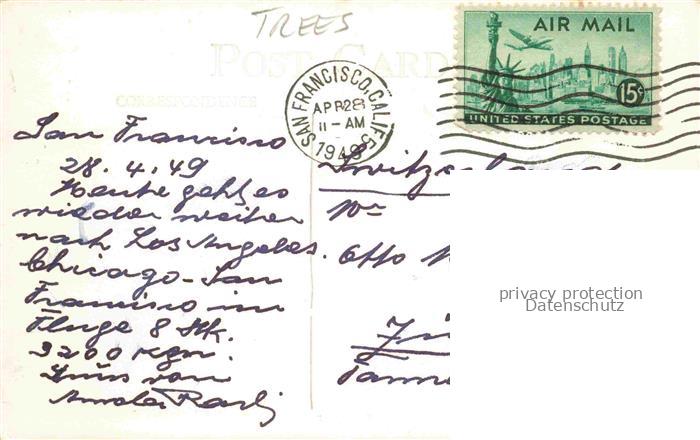 TREES
POST CARD
CORRESPONDENCE
AIR MAIL
15¢
UNITED STATES POSTAGE
SAN FRANCISCO, CALIF.
APR 28
11-AM
1949
San Francisco
28.4.49
Heute geht es
wieder weiter
nach Los Angeles.
Chicago-San
Francisco im
Fluge 8 Stk.
3200 kgm.
Gruss von
Switzerland
Otto
privacy protection
Datenschutz